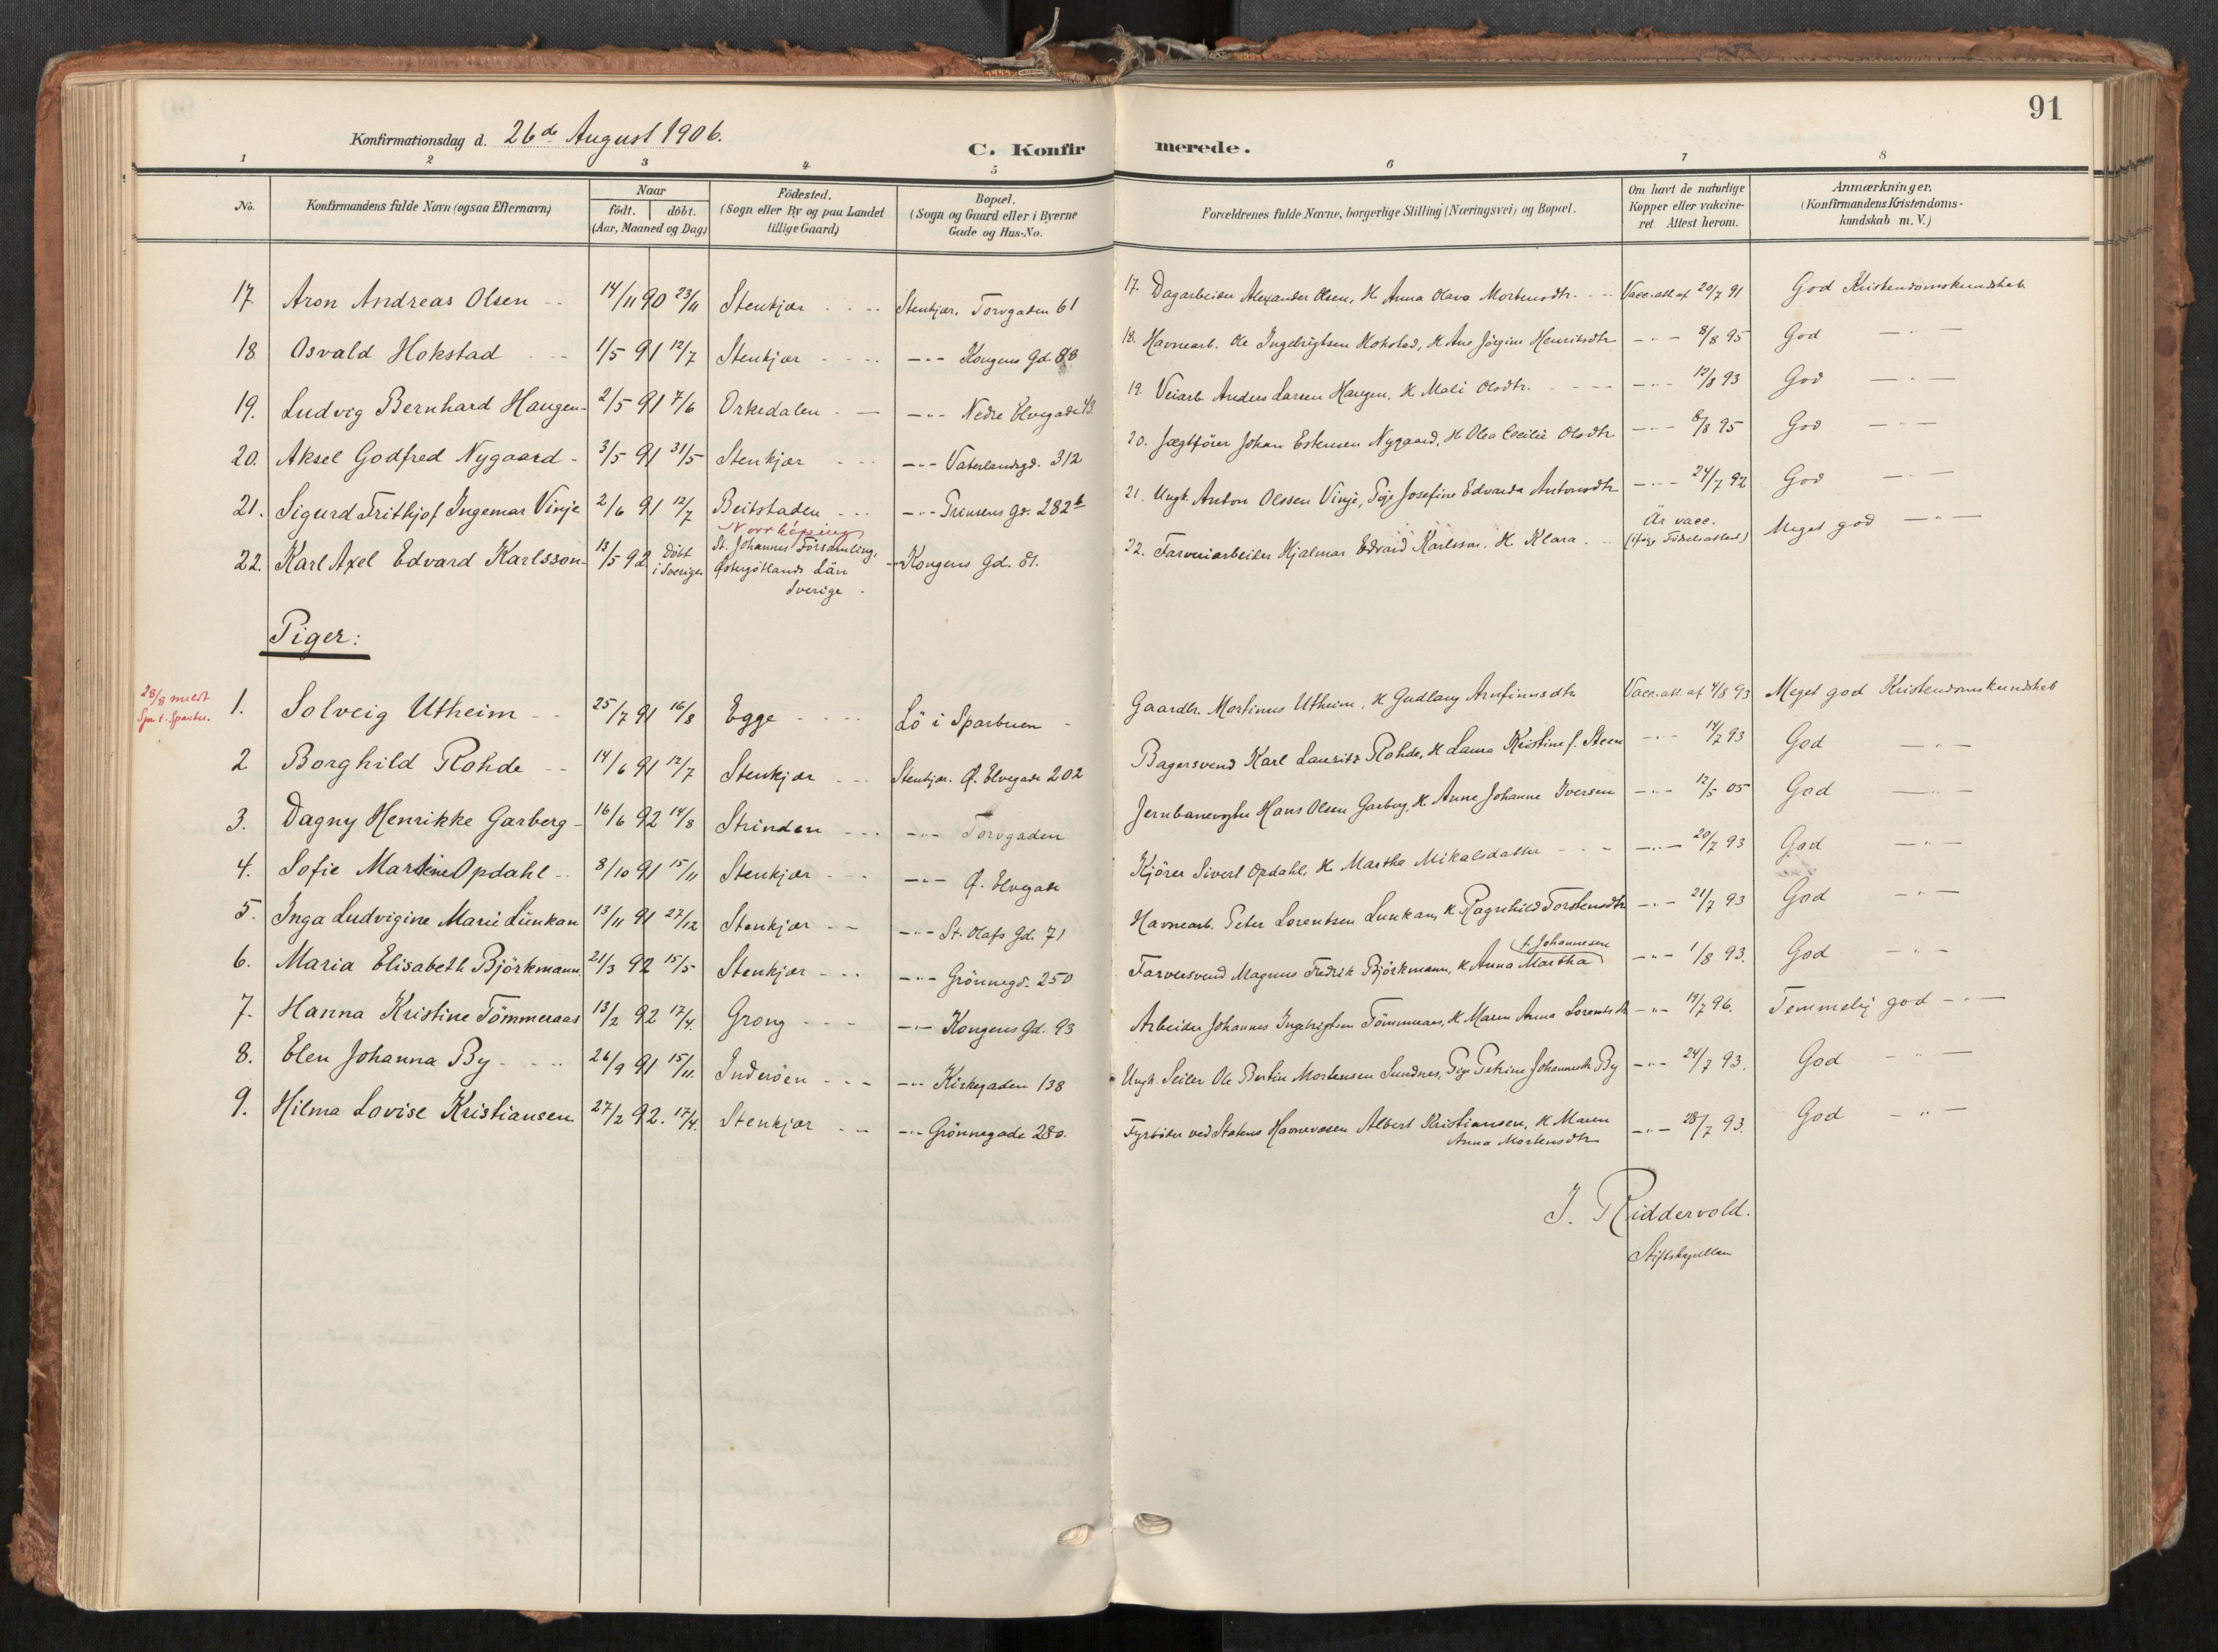 91
Konfirmationsdag d. 26de August 1906.
C. Konfirmerede.
1 2 3 4 5 6 7 8
No. | Konfirmandens fulde Navn (ogsaa Efternavn) | Naar födt. | döbt. (Aar, Maaned og Dag) | Födested. (Sogn eller By og paa Landet tillige Gaard) | Bopæl. (Sogn og Gaard eller i Byerne Gade og Hus-No. | Forældrenes fulde Navne, borgerlige Stilling (Næringsvei) og Bopæl. | Om havt de naturlige Kopper eller vakcineret. Attest herom. | Anmærkninger. (Konfirmandens Kristendomskundskab m. V.)
17. Aron Andreas Olsen 14/11 90 23/11 Stenkjær Stenkjær. Torvgaden 61 17. Dagarbeider Alexander Olsen, H. Anna Olava Mortensdtr. Vacc.att. af 20/7 91 God Kristendomskundskab
18 Osvald Hokstad 1/5 91 12/7 Stenkjær -"- Kongens Gd 88 18. Havnearb. Ole Ingebrigtsen Hokstad, H. Ane Jörgine Henriksdtr -"- 8/8 95 God -"-
19. Ludvig Bernhard Haugen 2/5 91 7/6 Orkedalen -"- Nedre Elvegade 43. 19. Veiarb Anders Larsen Haugen, H. Mali Olsdtr. -"- 12/8 93 God -"-
20. Aksel Godfred Nygaard 3/5 91 31/5 Stenkjær -"- Vaterlandsgd. 312 20. Jægtfører Johan Estensen Nygaard, H. Olea Cecilie Olsdtr -"- 8/8 95 God -"-
21. Sigurd Frithjof Ingemar Vinje 2/6 91 12/7 Beitstaden -"- Prinsens Gd. 282b 21. Ungk. Anton Olssen Vinje, Pige Josefine Edvarda Antonsdtr -"- 24/7 92 God -"-
22. Karl Axel Edvard Karlsson 13/5 92 Döbt i Sverige Norrköping St. Johannes Församling. Østergötlands Län Sverige -"- Kongens Gd. 81. 22. Farveriarbeider Hjalmar Edvard Karlsson. H. Klara. Är vacc. (ifølge Födselsattest) Meget god -"-
Piger:
28/8 meldt Spr. t. Sparbu. 1. Solveig Utheim 25/7 91 16/8 Egge Lö i Sparbuen Gaardbr. Mortinus Utheim, H. Gudlaug Arnfinnsdtr. Vacc.att. af 4/8 93 Meget god Kristendomskundskab
2. Borghild Rohde 14/6 91 12/7 Stenkjær Stenkjær. Ø. Elvegade 202 Bagersvend Karl Lauritz Rohde, H. Laura Kristine f. Steen -"- 14/7 93 God -"-
3. Dagny Henrikke Garberg 16/6 92 14/8 Strinden -"- Torvgaden Jernbanevogter Hans Olsen Garberg, H. Anne Johanne Iversen -"- 12/5 05 God -"-
4. Sofie Martine Opdahl 8/10 91 15/11 Stenkjær -"- Ø. Elvegade Kjörer Sivert Opdahl, H. Martha Mikalsdatter -"- 20/7 93 God -"-
5. Inga Ludvigine Marie Lünkan 13/11 91 27/12 Stenkjær -"- St. Olafs Gd. 71 Havnearb. Peter Lorentsen Lunkan, H. Ragnhild Torstensdtr -"- 21/7 93 God -"-
6. Maria Elisabeth Björkmann. 21/3 92 15/5 Stenkjær -"- Grönnegd. 250 Farversvend Magnus Fredrik Björkmann, H. Anna Martha f. Johannesen -"- 1/8 93. God -"-
7. Hanna Kristine Tömmeraas 13/2 92 17/4. Grong -"- Kongens Gd. 93 Arbeider Johannes Ingebrigtsen Tömmeraas, H. Maren Anna Lorentsdtr -"- 19/7 96. Temmelig god -"-
8. Elen Johanna By 26/9 91 15/11. Inderöen -"- Kirkegaden 138 Ungk. Seiler Ole Bertin Mortensen Sundnes, Pige Petrine Johannesdtr By -"- 24/7 93. God -"-
9. Hilma Lovise Kristiansen 27/2 92. 17/4. Stenkjær -"- Grönnegade 280. Fyrböter ved Statens Havnevæsen Albert Kristiansen, H. Maren Anna Mortensdtr -"- 28/7 93. God -"-
J. Riddervold.
Stiftskapellan